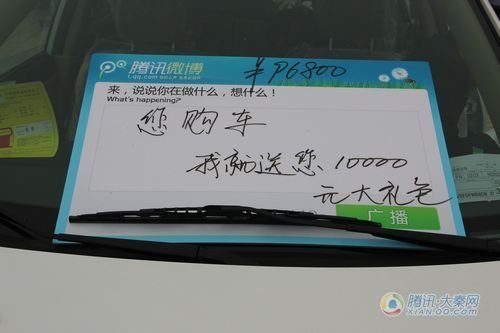 腾讯微博
t.qq.com
来，说说你在做什么，想什么！
What's happening?
您购车
我就送您10000
元大礼包
广播
腾讯·大秦网
XIAN.QQ.COM